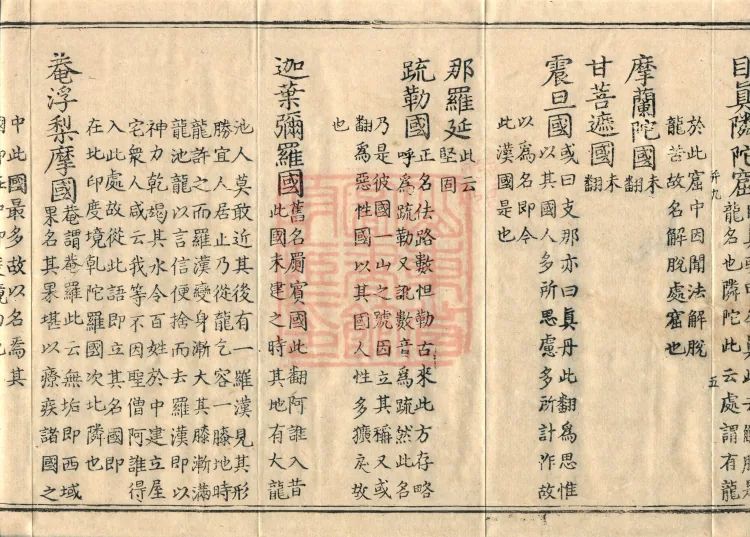 目眞隣陀窟
龍名也隣陀此云處謂有龍
於此窟中因聞法解脫
龍苦故名解脫處窟也
摩蘭陀國未翻
甘菩遮國未翻
震旦國或曰支那亦曰眞丹此翻爲思惟
以其國人多所思慮多所計作故
以爲名即今
此漢國是也
那羅延此云堅固
疏勒國正名佉路數怛勒古來此方存略
呼爲疏勒又訛數音爲疏然此名
乃是彼國一山之號因立其稱又或
翻爲惡性國以其國人性多獷戾故
也
迦葉彌羅國舊名罽賓國此翻阿誰入昔
此國未建之時其地有大龍
池人莫敢近其後有一羅漢見其形
勝宜人居止乃從龍乞容一膝地時
龍許之而羅漢變身漸大其膝漸滿
龍池龍以言信便捨而去羅漢即以
神力乾竭其水令百姓於中建立屋
宅衆人咸云我等不因聖僧阿誰得
入此處故從此語即立其名國即
在北印度境乹陀羅國次北隣也
菴浮梨摩國菴謂菴羅此云無垢即西域
果名其果堪以療疾諸國之
中此國最多故以名焉其